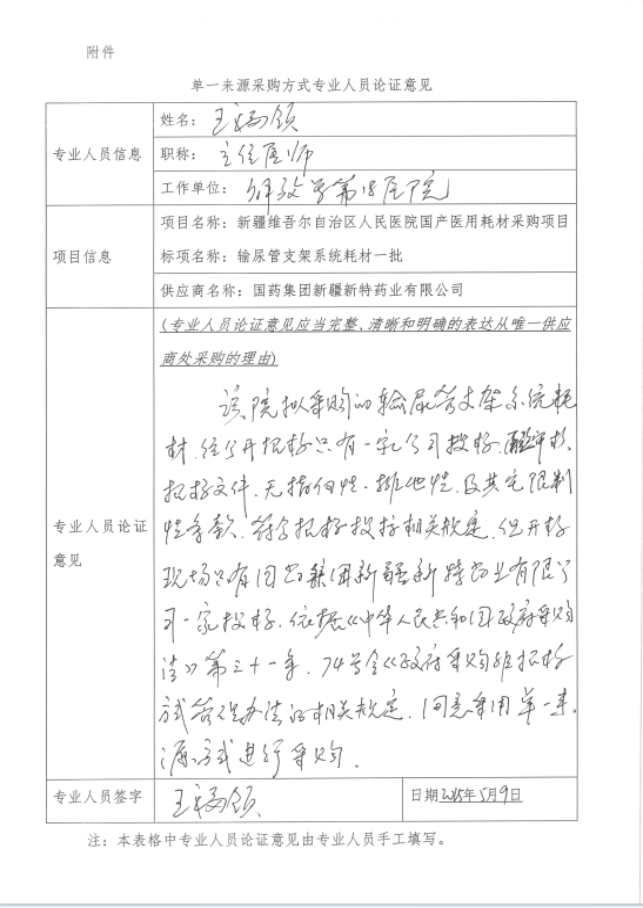 附件
单一来源采购方式专业人员论证意见
专业人员信息
姓名：王福领
职称：主任医师
工作单位：解放军第18医院
项目信息
项目名称：新疆维吾尔自治区人民医院国产医用耗材采购项目
标项名称：输尿管支架系统耗材一批
供应商名称：国药集团新疆新特药业有限公司
专业人员论证
意见
(专业人员论证意见应当完整、清晰和明确的表达从唯一供应
商处采购的理由)
该院拟采购的输尿管支架系统耗
材，经公开招标只有一家公司投标，审核
招标文件，无指向性、排他性、及其它限制
性条款，符合招标投标相关规定，但开标
现场只有国药集团新疆新特药业有限公
司一家投标，依据《中华人民共和国政府采购
法》第三十一条，74号令《政府采购非招标
方式管理办法的相关规定，同意采用单一来
源方式进行采购．
专业人员签字
王福领
日期 2015年5月9日
注：本表格中专业人员论证意见由专业人员手工填写。